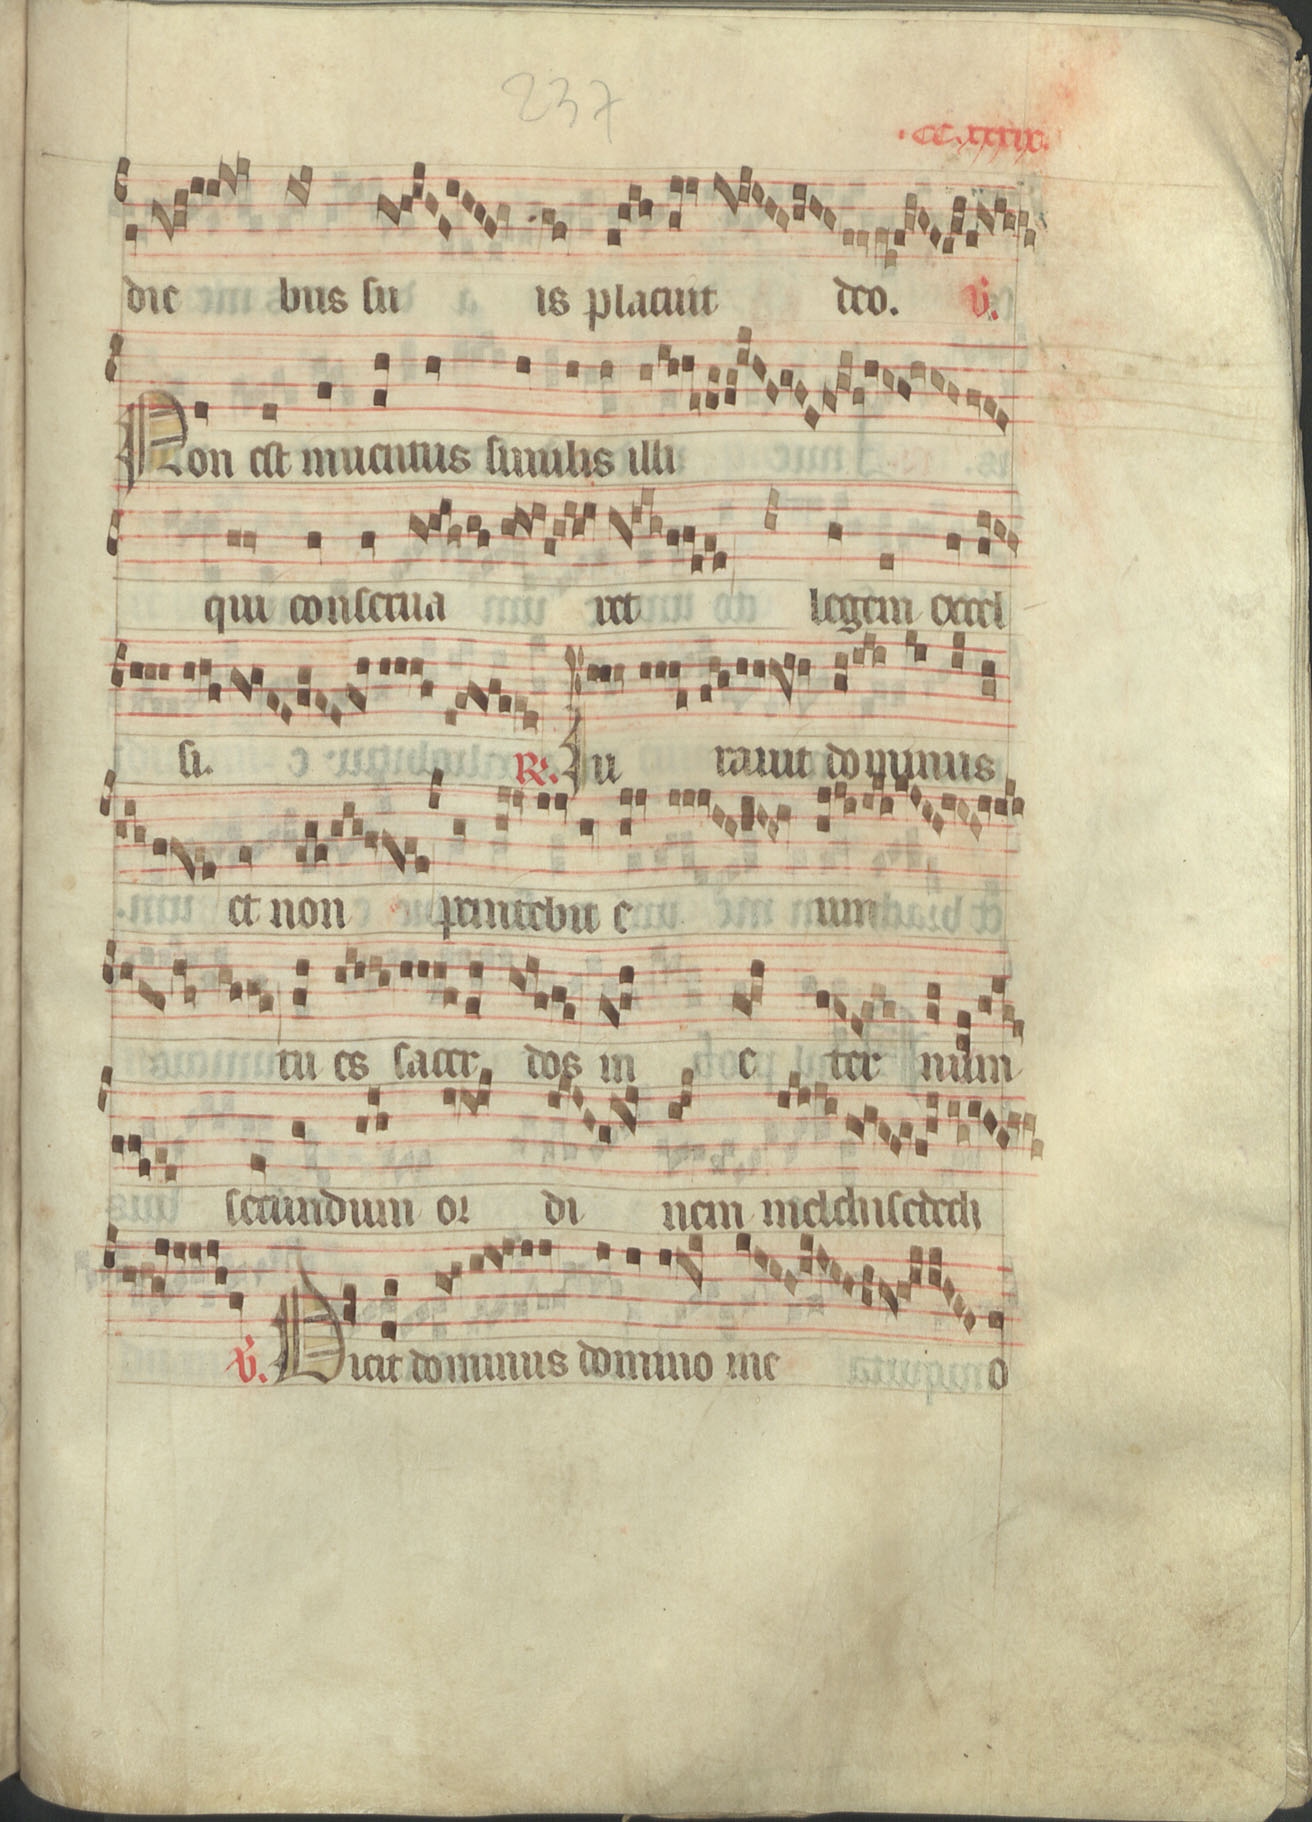 237
·CC.xxxix.
die bus su is placuit deo. ℣.
Non est inuentus similis illi
qui conserua ret legem excel
si. ℟. Iu rauit dominus
et non penitebit e um
tu es sacer dos in e ter num
secundum or di nem melchisedech
℣. Dicit dominus domino me o